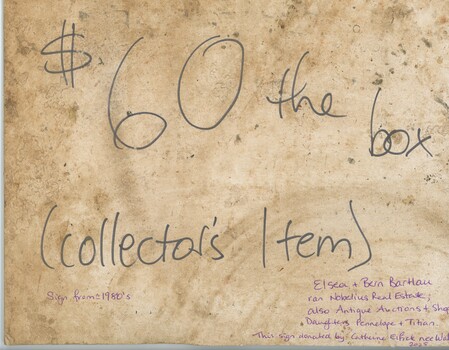 $60 the box
(collector's Item)
Sign from 1980's
Elsea + Bern Bartlau
ran Nobelius Real Estate;
also Antique Auctions + Shop
Daughters Pennelope + Titian
This sign donated by Catherine nee